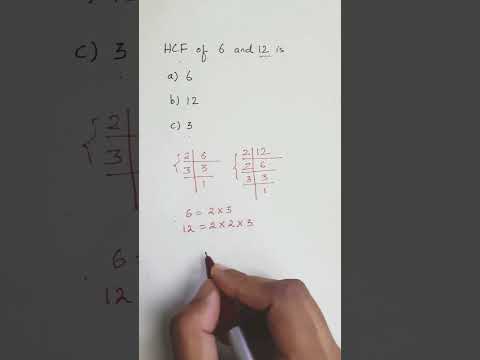 HCF of 6 and 12 is
a) 6
b) 12
c) 3
2 | 6
3 | 3
1
2 | 12
2 | 6
3 | 3
1
6 = 2 × 3
12 = 2 × 2 × 3